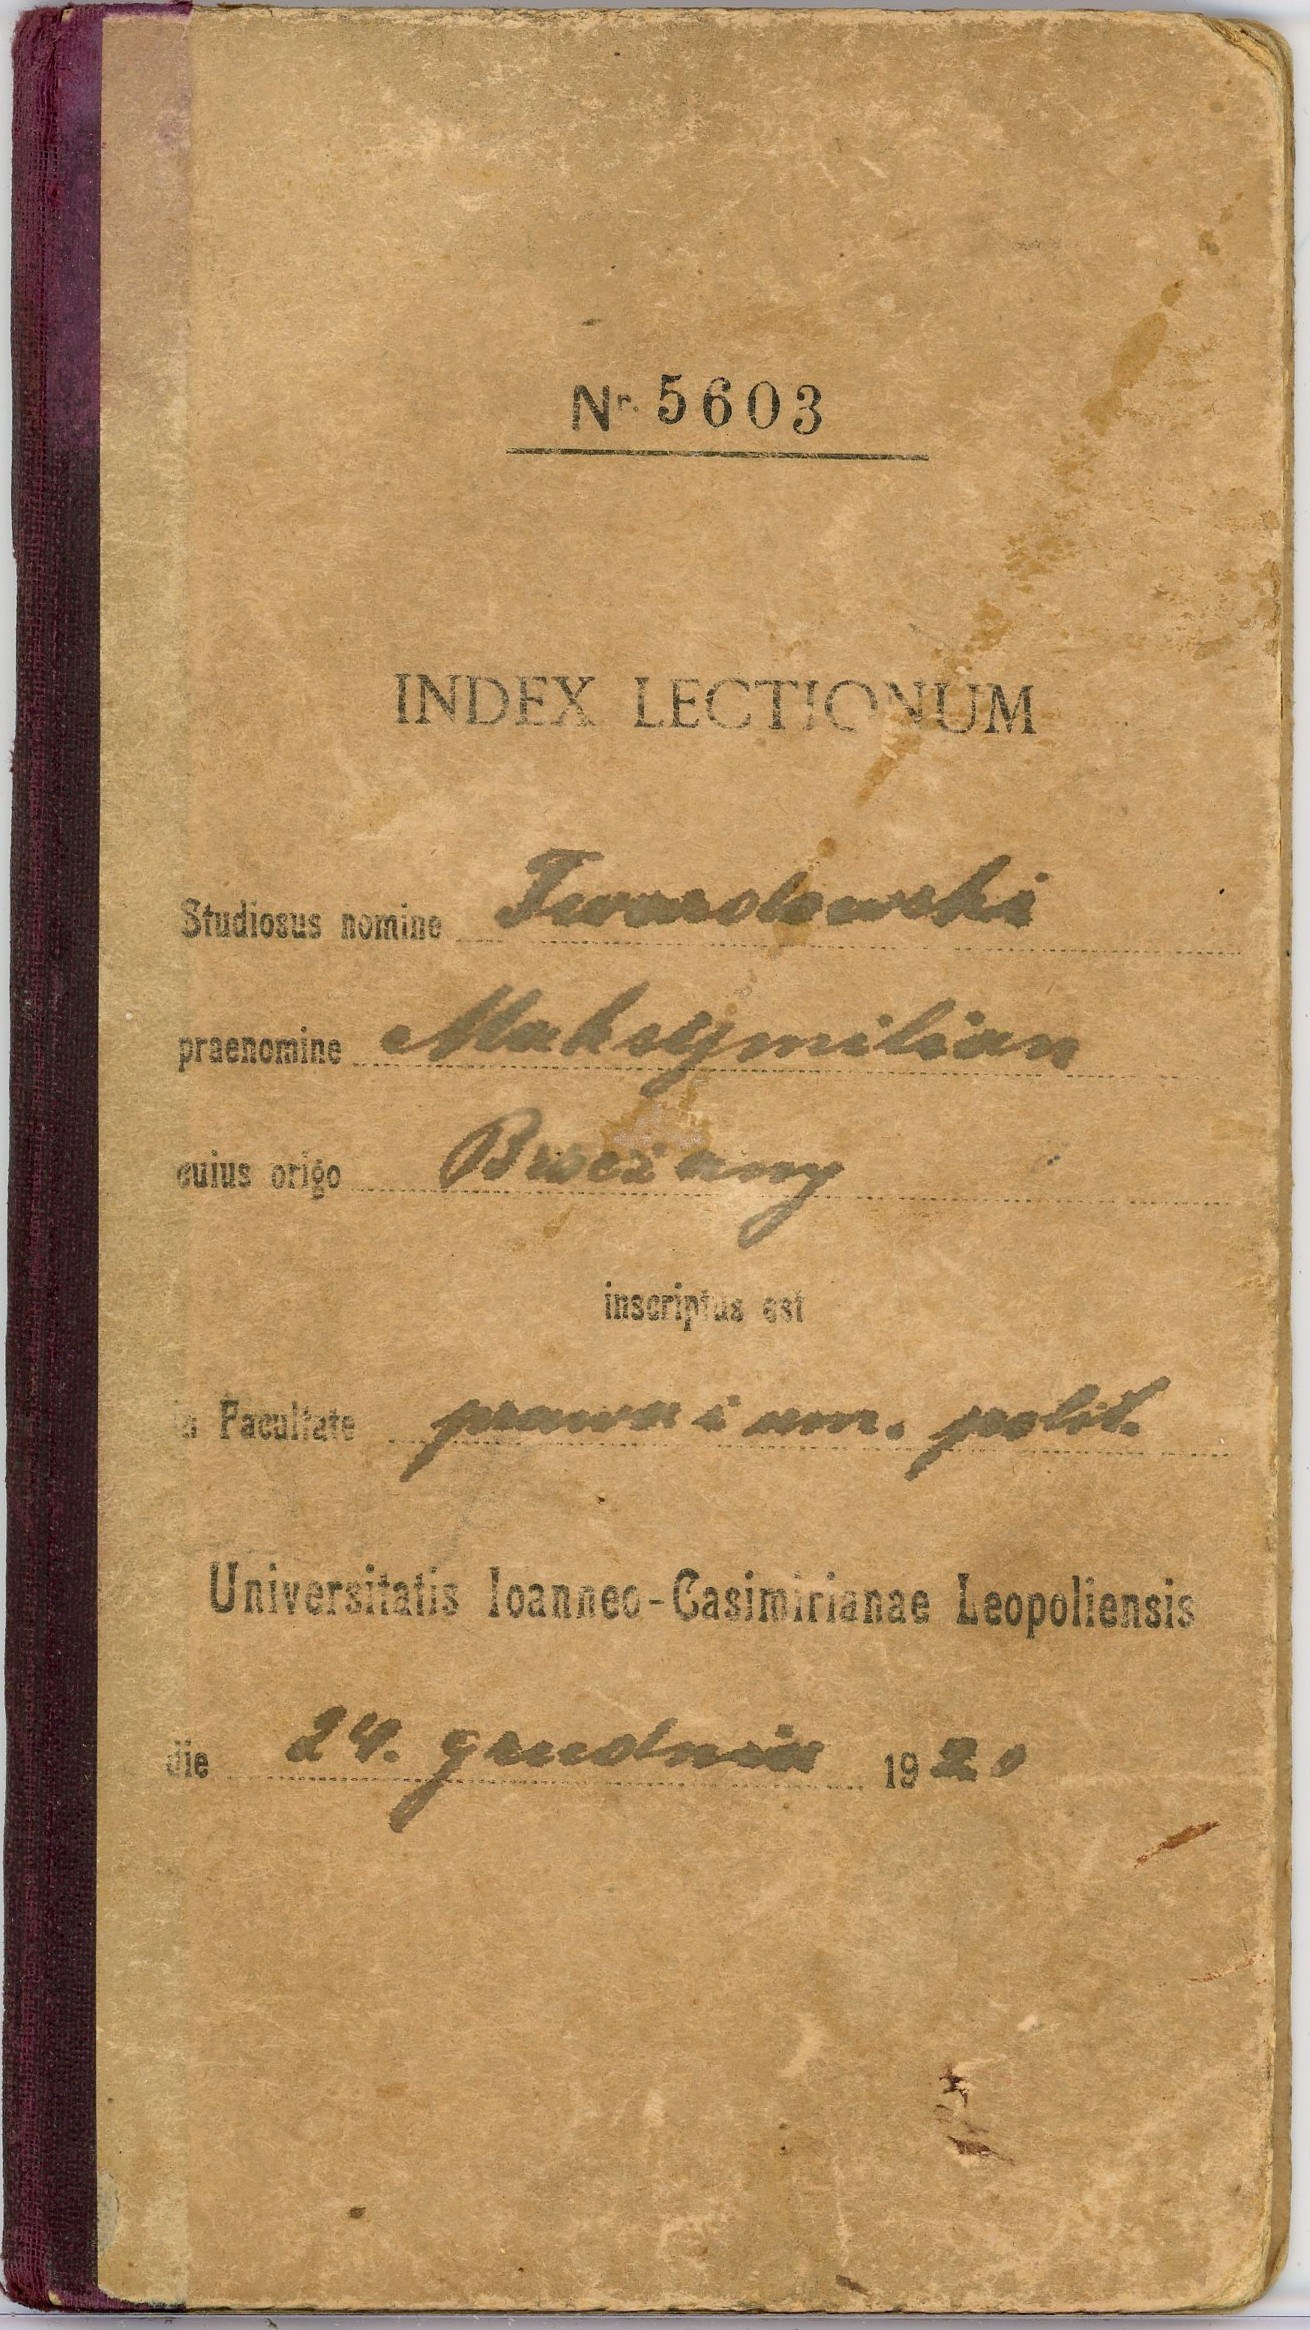 Nr. 5603
INDEX LECTIONUM
Studiosus nomine Twardowski
praenomine Maksymilian
cuius origo Brzeżany
inscriptus est
in Facultate prawa i um. polit.
Universitatis Ioanneo-Casimirianae Leopoliensis
die 24. grudnia 1920